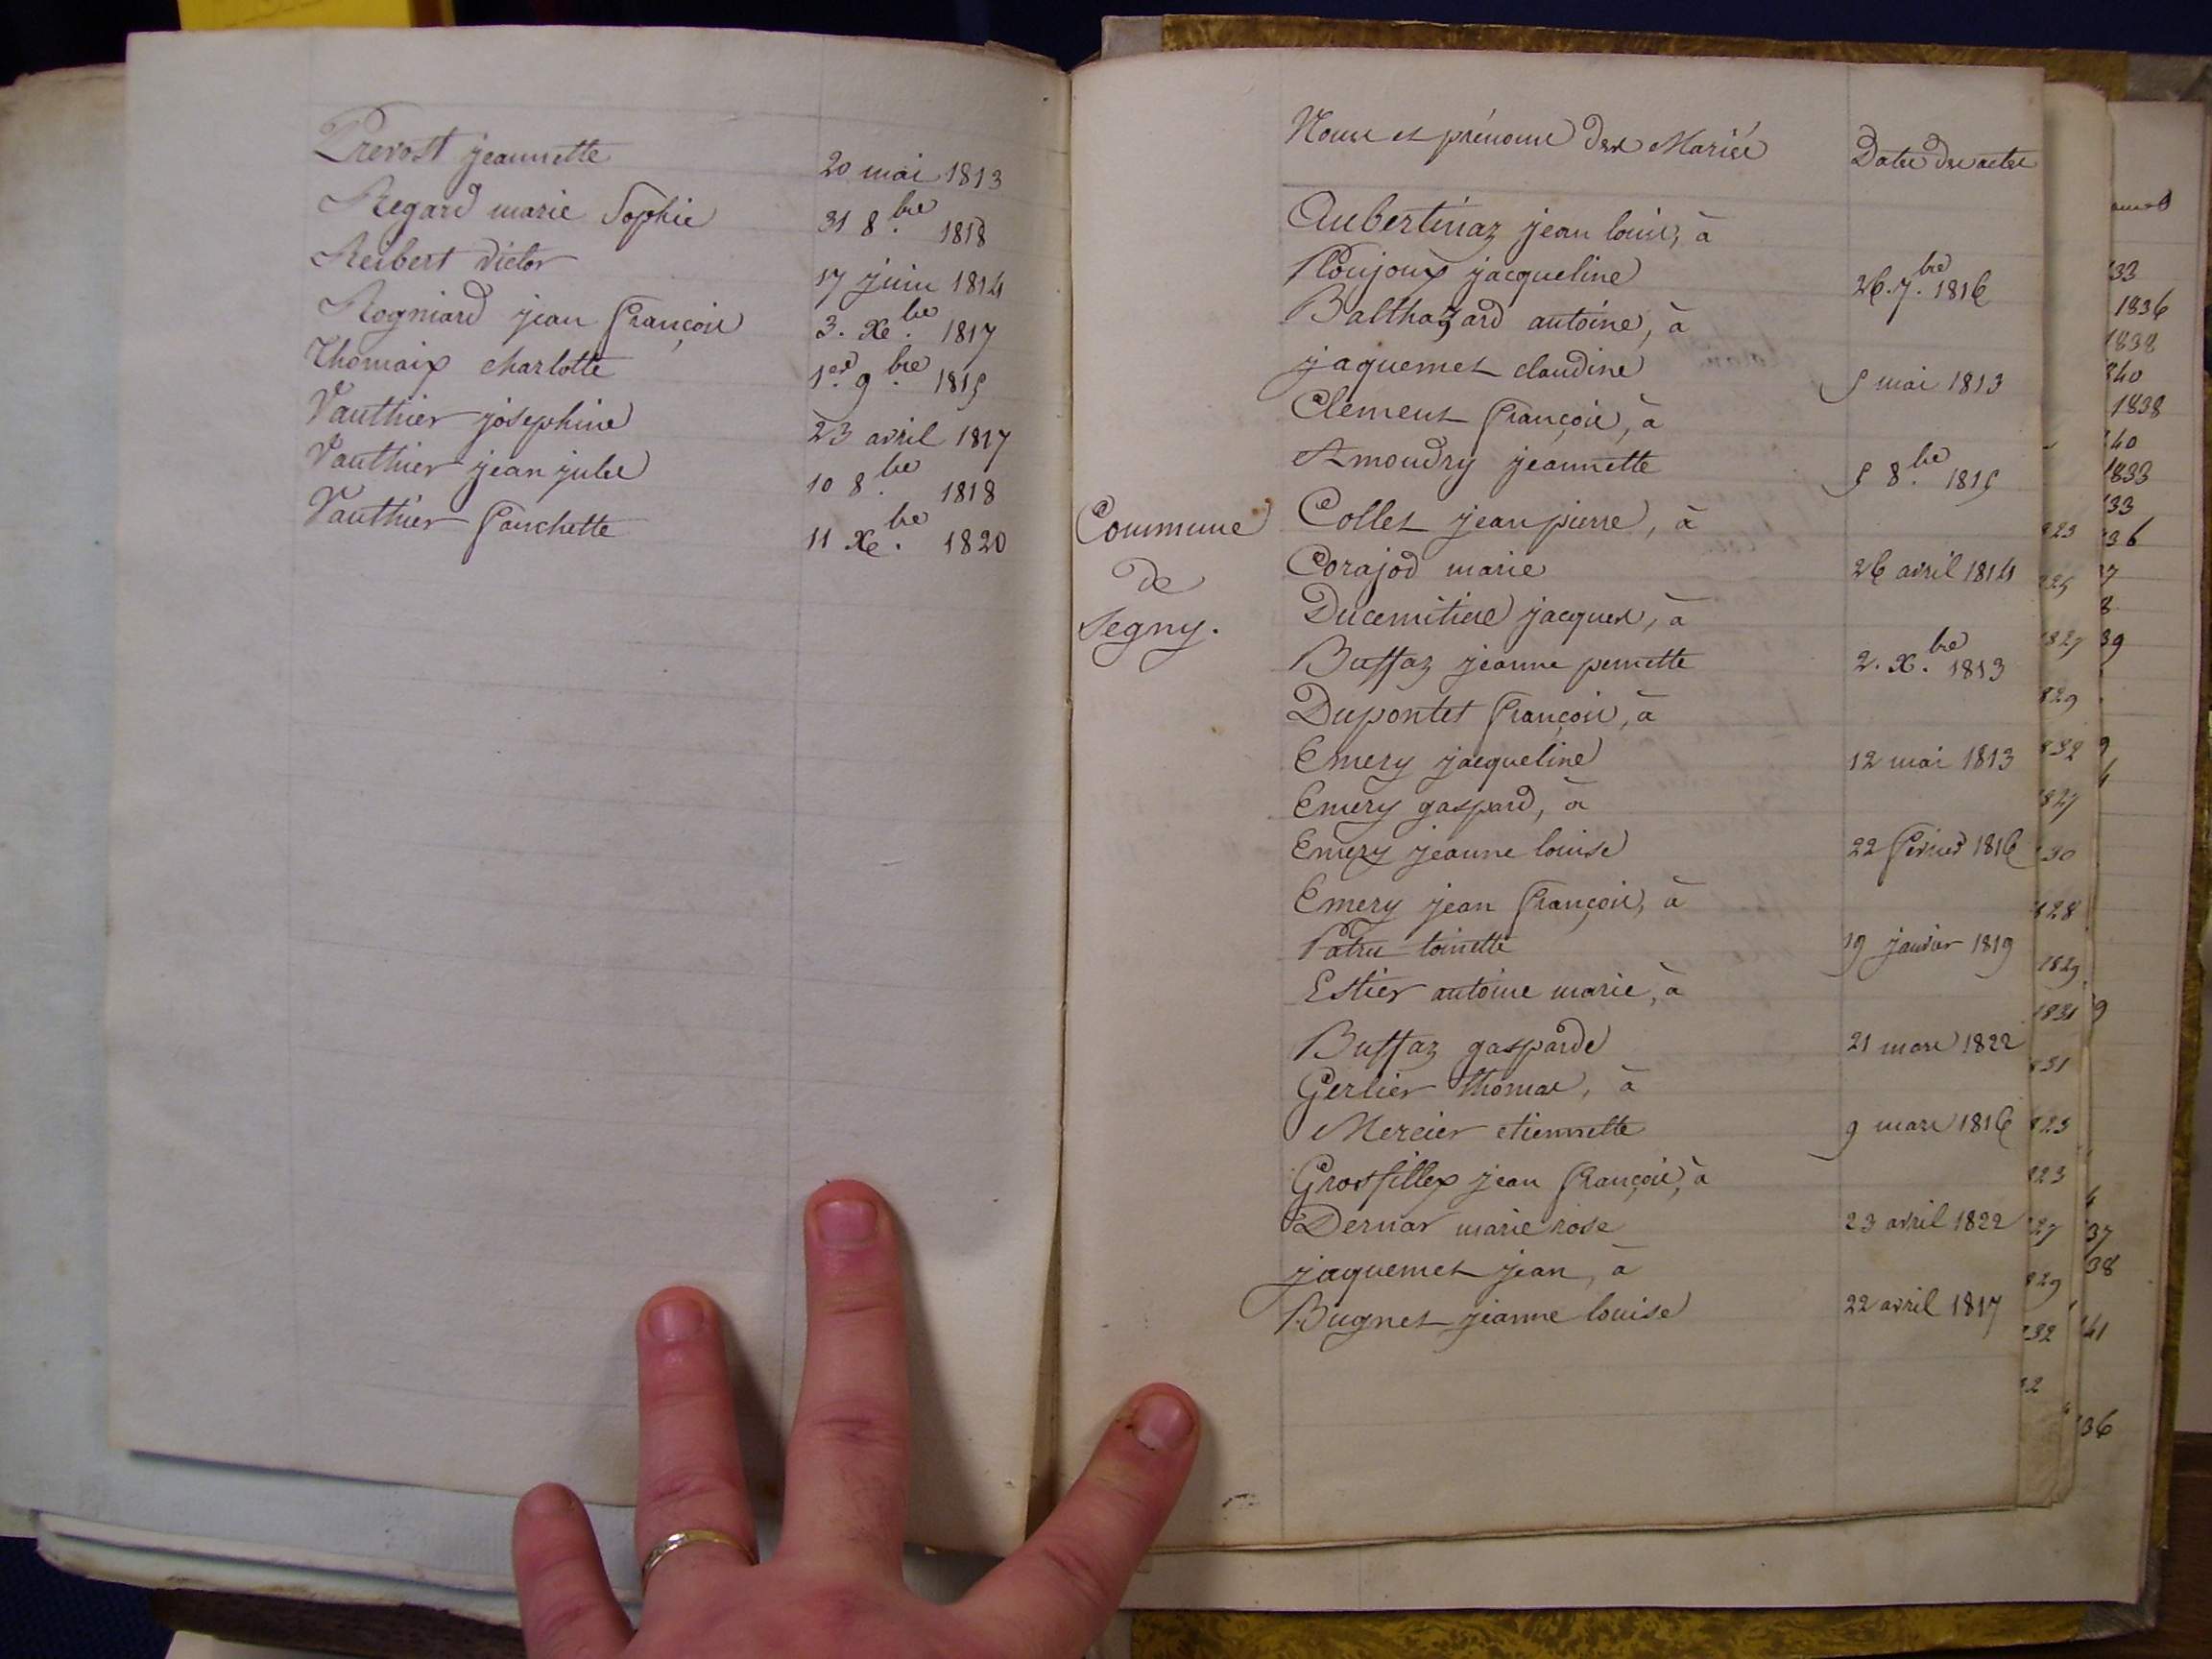 Prevost jeannette 20 mai 1813
Regard marie Sophie 31 8.bre 1818
Reibert victor 17 juin 1814
Rogniard jean françois 3. Xe.bre 1817
Thomaix charlotte 1er. 9.bre 1815
Vauthier josephine 23 avril 1817
Vauthier jean jules 10 8.bre 1818
Vauthier fanchette 11 Xe.bre 1820
Noms et prénoms des Mariés Dates des actes
Commune
de
Segny.
Aubertinaz jean louis, à
Ploujoux jacqueline 26. 7.bre 1816
Balthazard antoine, à
jaquemet claudine 5 mai 1813
Clement françois, à
Amoudry jeannette 5 8.bre 1815
Collet jean pierre, à
Corajod marie 26 avril 1814
Ducimitiere jacques, à
Buffaz jeanne pernette 2. X.bre 1813
Dupontet françois, à
Emery jacqueline 12 mai 1813
Emery gaspard, à
Emery jeanne louise 22 février 1816
Emery jean françois, à
Patru toinette 19 janvier 1819
Estier antoine marie, à
Buffaz gasparde 21 mars 1822
Gerlier thomas, à
Mercier etiennette 9 mars 1816
Grosfillex jean françois, à
Dernar marie rose 23 avril 1822
jaquemet jean, à
Bugnet jeanne louise 22 avril 1817
33
1836
1838
40
1838
40
1833
33
36
7
8
39
37
38
41
36